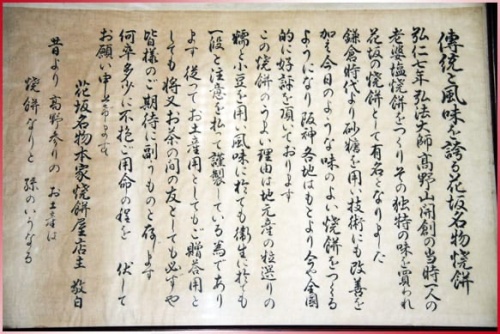 傳統と風味を誇る花坂名物焼餅
弘仁七年弘法大師高野山開創の当時一人の
老婆塩焼餅をつくりその独特の味を賞われ
花坂の焼餅として有名となりました
鎌倉時代より砂糖を用い技術にも改善を
加え今日のような味のよい焼餅をつくる
ようになり阪神各地はもとより今や全国
的に好評を頂いております
この焼餅のうよい理由は地元産の粒選りの
糯と小豆を用い風味に於ても衛生に於ても
一段と注意を払って謹製している為であり
ます 従ってお土産用としてもご贈答用と
しても将又お茶の間の友としても必ずや
皆様のご期待に副うものと存じます
何卒多少に不抱ご用命の程を 伏して
お願い申し上げます
花坂名物本家焼餅屋店主 敬白
昔より高野参りのお土産は
焼餅なりと 孫のいうなる